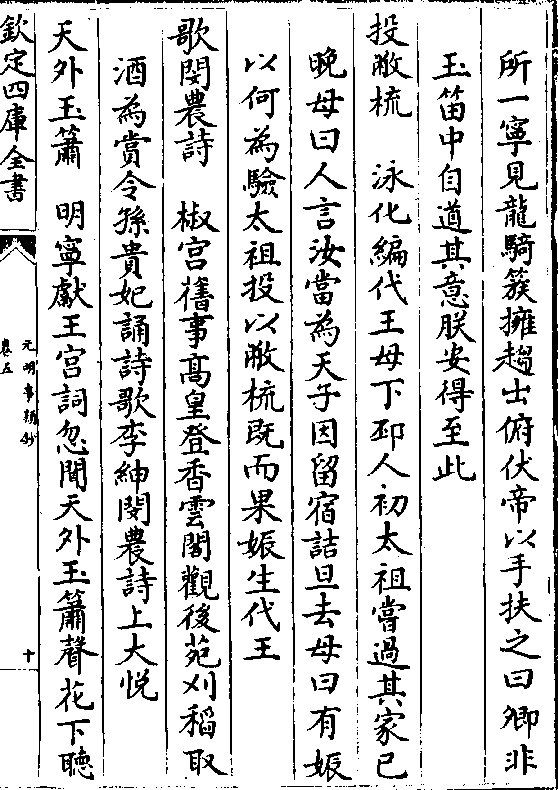 所一寧見龍騎簇擁趨出俯伏帝以手扶之曰卿非
玉笛中自道其意朕安得至此
投敝梳　泳化編代王母下邳人初太祖嘗過其家已
晚母曰人言汝當為天子因留宿詰旦去母曰有娠
以何為驗太祖投以敝梳既而果娠生代王
歌閔農詩　椒宫舊事髙皇登香雲閣觀後苑刈稻取
酒為賞令孫貴妃誦詩歌李紳閔農詩上大悅
天外玉簫　明寧獻王宫詞忽聞天外玉簫聲花下聽
欽定四庫全書
元明事類鈔
卷五
十